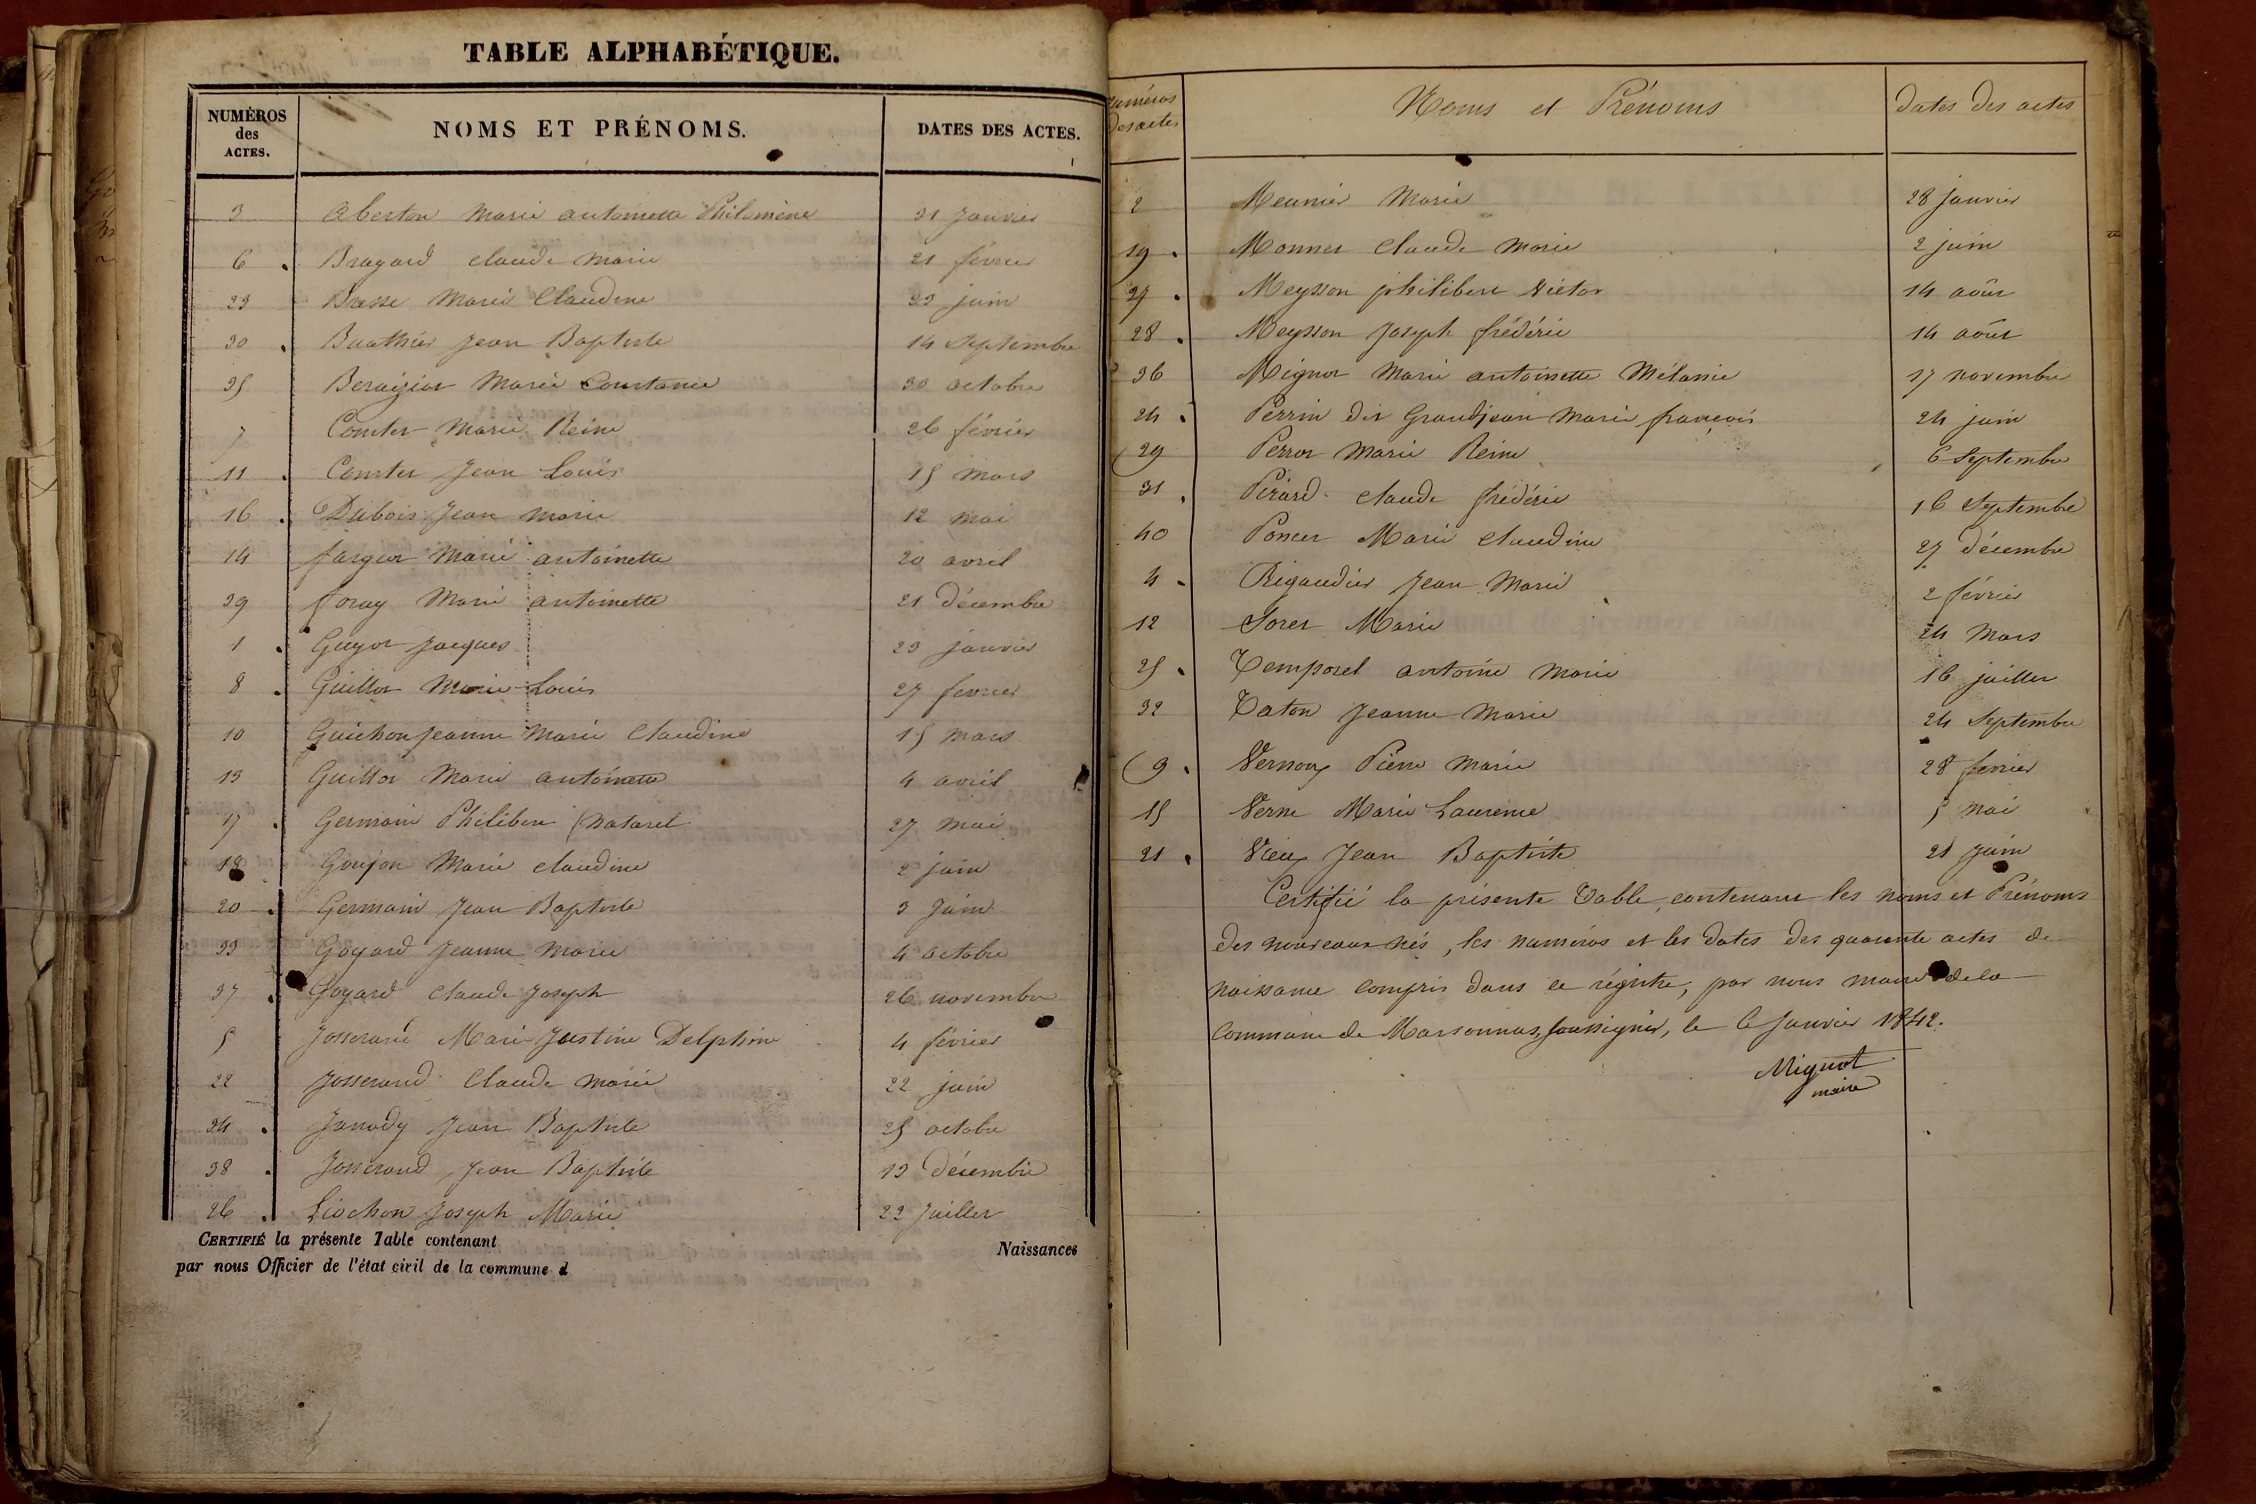 TABLE ALPHABÉTIQUE.
NUMÉROS des ACTES. NOMS ET PRÉNOMS. DATES DES ACTES.
3 Aberton Marie antoinette Philomène 31 Janvier
6 Bragard claude marie 21 février
23 Brasse Marie Claudine 23 juin
30 Buathier Jean Baptiste 14 Septembre
35 Marie Constance 30 octobre
7 Comtet Marie Reine 26 février
11 Comtet Jean Louis 15 mars
16 Dubois Jean marie 12 mai
14 fargeot Marie antoinette 20 avril
39 foray Marie antoinette 21 Décembre
1 Guyot Jacques 23 janvier
8 Guillot Marie Louis 27 fevrier
10 Guichon jeanne Marie Claudine 15 mars
13 Guillot Marie antoinette 4 avril
17 Germain Philibert (naturel 27 mai
18 Goujon Marie claudine 2 juin
20 Germain Jean Baptiste 3 Juin
33 Goyard Jeanne Marie 4 octobre
37 Goyard claude Joseph 26 novembre
5 Josserand Marie Justine Delphine 4 février
22 Josserand Claude marie 22 juin
34 Janody Jean Baptiste 25 octobre
38 Josserand Jean Baptiste 13 Décembre
26 Liochon Joseph Marie 22 Juillet
CERTIFIÉ la présente Table contenant Naissances
par nous Officier de l'état civil de la commune d
numéros des actes Noms et Prénoms dates des actes
2 Meunier Marie 28 janvier
19 Monnet Claude Marie 2 juin
27 Meysson philibert Victor 14 août
28 Meysson Joseph frédéric 14 août
36 Mignot Marie antoinette Mélanie 17 novembre
24 Perrin dit Grandjean Marie françois 24 juin
29 Perrot Marie Reine 6 Septembre
31 Pérard claude frédéric 16 Septembre
40 Poncet Marie claudine 27 décembre
4 Rigaudier Jean Marie 2 février
12 Soret Marie 24 Mars
25 Temporel antoine Marie 16 juillet
32 Taton Jeanne Marie 24 Septembre
9 Vernoux Pierre Marie 28 fevrier
15 Verne Marie Laurence 5 mai
21 Vieux Jean Baptiste 21 juin
Certifié la présente Table, contenant les noms et Prénoms
des nouveaux nés, les numéros et les dates des quarante actes de
naissance compris dans ce régistre, par nous maire de la
Commune de Marsonnas, soussigné, le 6 Janvier 1842.
Mignot
maire